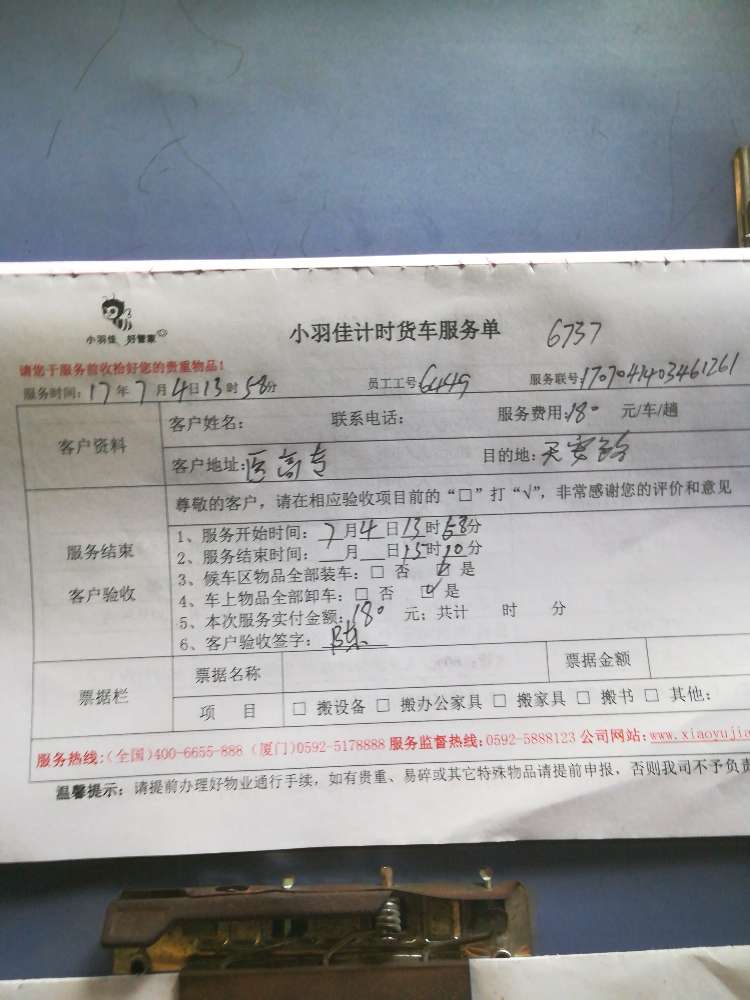 小羽佳 好管家
小羽佳计时货车服务单 6737
请您于服务前收检好您的贵重物品！
服务时间：17年7月4日13时58分 员工工号：6449 服务联号：1707041403461261
客户资料
客户姓名： 联系电话： 服务费用：180 元/车/趟
客户地址：医高专 目的地：
尊敬的客户，请在相应验收项目前的“□”打“√”，非常感谢您的评价和意见
服务结束
客户验收
1、服务开始时间：7月4日13时58分
2、服务结束时间：___月___日15时10分
3、候车区物品全部装车：□ 否 ☑ 是
4、车上物品全部卸车：□ 否 ☑ 是
5、本次服务实付金额：180 元；共计 时 分
6、客户验收签字：陈
票据栏
票据名称 票据金额
项 目 □ 搬设备 □ 搬办公家具 □ 搬家具 □ 搬书 □ 其他：
服务热线：（全国）400-6655-888（厦门）0592-5178888 服务监督热线：0592-5888123 公司网站：www.xiaoyujia
温馨提示：请提前办理好物业通行手续，如有贵重、易碎或其它特殊物品请提前申报，否则我司不予负责